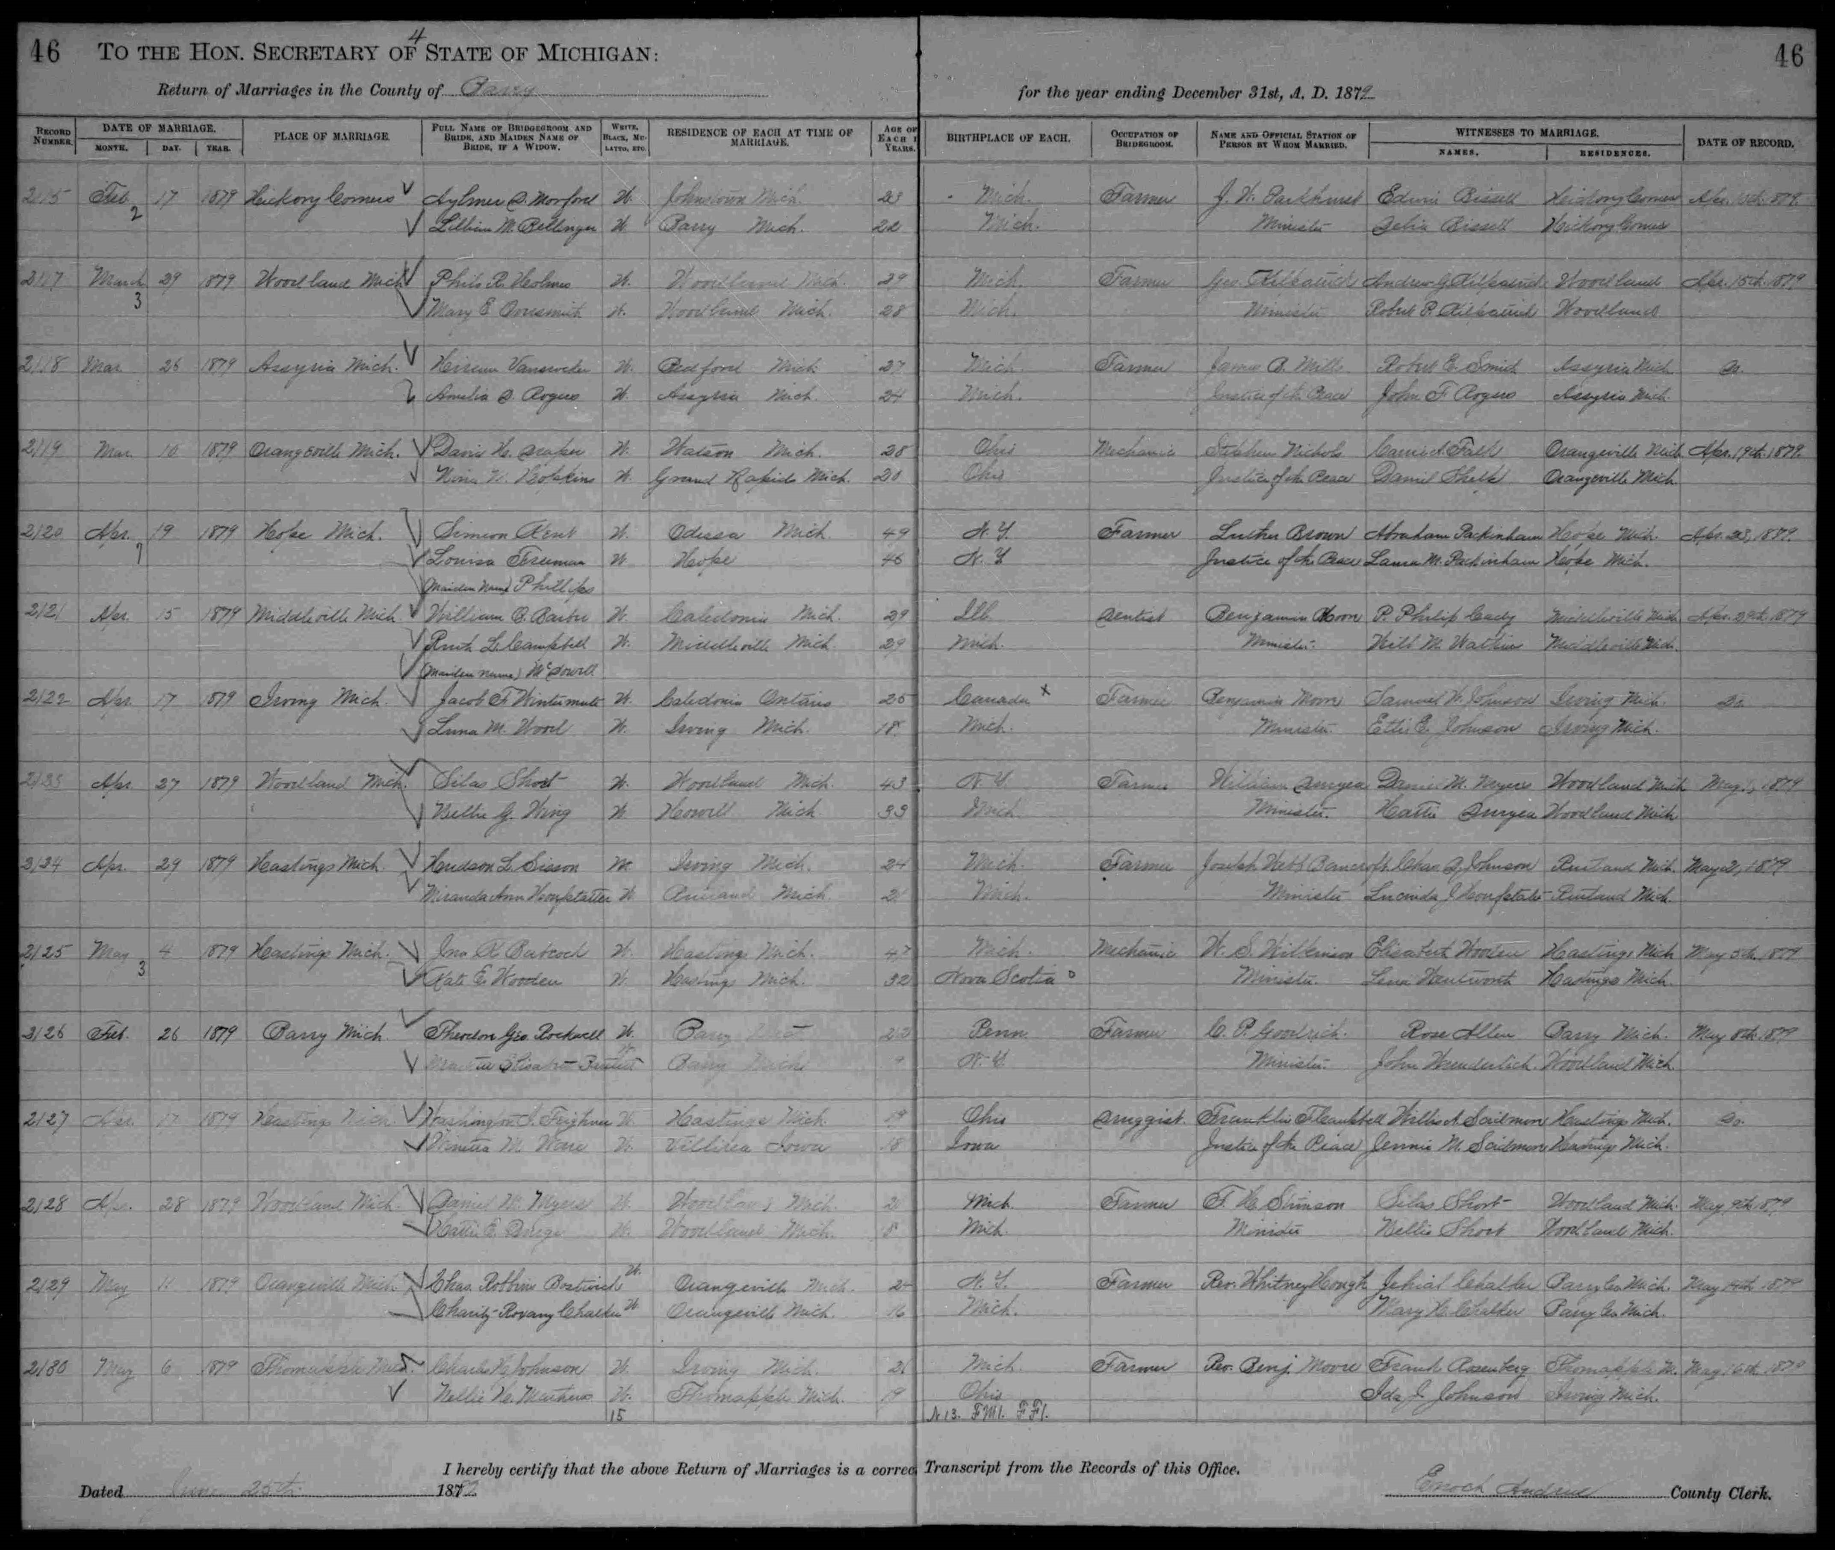 46 TO THE HON. SECRETARY OF STATE OF MICHIGAN: 46
4
Return of Marriages in the County of Barry for the year ending December 31st, A. D. 1879
RECORD NUMBER. DATE OF MARRIAGE. MONTH. DAY. YEAR. PLACE OF MARRIAGE. FULL NAME OF BRIDEGROOM AND BRIDE, AND MAIDEN NAME OF BRIDE, IF A WIDOW. WHITE, BLACK, MULATTO, ETC. RESIDENCE OF EACH AT TIME OF MARRIAGE. AGE OF EACH YEARS. BIRTHPLACE OF EACH. OCCUPATION OF BRIDEGROOM. NAME AND OFFICIAL STATION OF PERSON BY WHOM MARRIED. WITNESSES TO MARRIAGE. NAMES. RESIDENCES. DATE OF RECORD.
2115 Feb 17 1879 Hickory Corners Aylmer D. Morford W. Johnstown Mich 23 Mich. Farmer J. W. Parkhurst Edwin Bissell Hickory Corners Apr. 1879.
2 Lillian M. Bellinger W Barry Mich. 22 Mich. Minister Delia Bissell Hickory Corners
2117 March 29 1879 Woodland Mich Philo R. Holmes W. Woodland Mich. 29 Mich. Farmer Geo. Kilpatrick Andrew G Kilpatrick Woodland Apr. 15th 1879
3 Mary E W. Woodland Mich. 28 Mich. Minister Robert P. Kilpatrick Woodland
2118 Mar 26 1879 Assyria Mich. Hiram W. Bedford Mich 27 Mich Farmer James B. Mills Robert E. Smith Assyria Mich Do.
Amelia D. Rogers W. Assyria Mich. 24 Mich. Justice of the Peace John F Rogers Assyria Mich
2119 Mar. 16 1879 Orangeville Mich. David H. Draper W. Watson Mich. 28 Ohio Mechanic Stephen Nichols Orangeville Mich Apr. 19th 1879.
Hopkins W. Grand Rapids Mich. 20 Ohio Justice of the Peace Daniel Orangeville Mich
2120 Apr. 19 1879 Hope Mich. Simeon Kent W. Odessa Mich. 49 N. Y. Farmer Luther Brown Abraham Packinham Hope Mich. Apr. 23, 1879.
Louisa Freeman W Hope 46 N. Y Justice of the Peace Laura M. Packinham Hope Mich.
(Maiden Name) Phillips
2121 Apr. 15 1879 Middleville Mich William B. Barber W. Caledonia Mich. 29 Ill. Dentist Benjamin Moon P. Philip Cady Middleville Mich Apr. 29th 1879
Ruth L. Campbell W. Middleville Mich 29 Mich. Minister. Will M. Watkins Middleville Mich.
(Maiden Name) McDowell
2122 Apr. 17 1879 Irving Mich. Jacob F Wintermute W. Caledonia Ontario 25 Canada x Farmer Benjamin Moon Samuel W. Johnson Irving Mich. Do.
Luna M. Wood W. Irving Mich. 18 Mich. Minister Ettie E. Johnson Irving Mich.
2123 Apr. 27 1879 Woodland Mich. Silas Short W. Woodland Mich. 43 N. Y. Farmer William Duryea Daniel M. Myers Woodland Mich May 1879
Nellie G. Wing W. Howell Mich 33 Mich Minister. Hattie Duryea Woodland Mich
2124 Apr. 29 1879 Hastings Mich. Hudson L. Sisson W. Irving Mich. 24 Mich. Farmer Joseph Webb Bancroft Chas. B. Johnson Rutland Mich. May 2, 1879
Miranda Ann W Rutland Mich. Mich. Minister Lucinda J Rutland Mich.
2125 May 4 1879 Hastings Mich. Jno. R Babcock W. Hastings Mich. 47 Mich. Mechanic W. S. Wilkinson Elizabeth Wooden Hastings Mich May 5th 1879
3 Kate E. Wooden W. Hastings Mich. 32 Nova Scotia Minister. Wentworth Hastings Mich.
2126 Feb. 26 1879 Barry Mich Theodore Geo. Rockwell W. Barry Mich Penn Farmer C. P. Goodrich. Rose Allen Barry Mich. May 8th 1879
W. Barry Mich N. Y Minister. John Wunderlich. Woodland Mich
2127 Apr. 17 1879 Hastings Mich. Washington I. Feighner W. Hastings Mich. 19 Ohio Druggist. Franklin T Campbell Willis A Scidmore Hastings Mich. Do.
M. Ware W. Villisca Iowa 18 Iowa Justice of the Peace Jennie M. Scidmore Hastings Mich.
2128 Apr. 28 1879 Woodland Mich. Daniel W. Myers W. Woodland Mich. Mich Farmer F. H. Stimson Silas Short Woodland Mich. May 9th 1879
Hattie E. W. Woodland Mich. Mich. Minister Nellie Short Woodland Mich.
2129 May 11 1879 Orangeville Mich. Chas. Robbins Bostwick W. Orangeville Mich. 24 N. Y. Farmer Rev. Whitney Hough Jehial Chalker Barry Co. Mich. May 14th 1879
Charity Roxany Chalker W Orangeville Mich. 16 Mich. Mary H. Chalker Barry Co. Mich.
2130 May 6 1879 Thornapple Mich. Charles H. Johnson W Irving Mich. Mich Farmer Rev. Benj. Moore Frank Rosenberg Thornapple M. May 16th 1879
Nellie W. Thornapple Mich. 19 Ohio Ida J. Johnson Irving Mich.
15 N 13. FM1. FF1.
I hereby certify that the above Return of Marriages is a correct Transcript from the Records of this Office.
Dated June 25th 187 County Clerk.